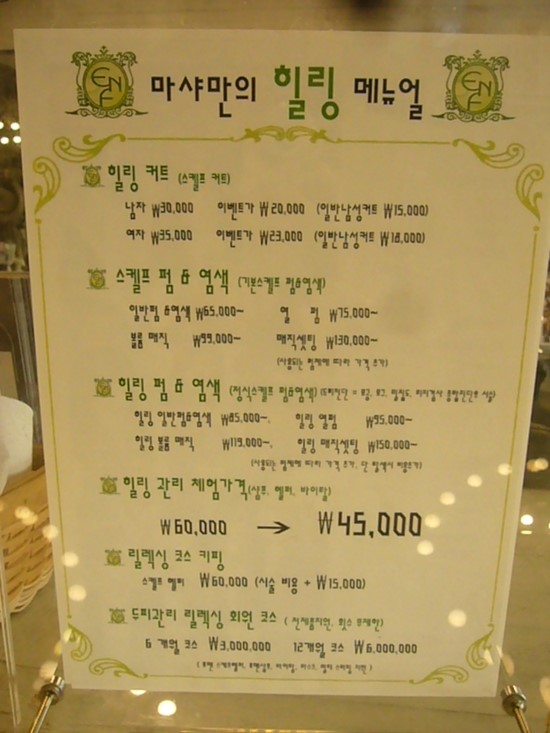 ENF 마샤만의 힐링 메뉴얼 ENF
힐링 커트 (스켈프 커트)
남자 ₩30,000 이벤트가 ₩20,000 (일반남성커트 ₩15,000)
여자 ₩35,000 이벤트가 ₩23,000 (일반남성커트 ₩18,000)
스켈프 펌 & 염색 (기본스켈프 펌&염색)
일반펌 &염색 ₩65,000~ 열 펌 ₩75,000~
볼륨 매직 ₩99,000~ 매직셋팅 ₩130,000~
(사용되는 펌제에 따라 가격 추가)
힐링 펌 & 염색 (정식스켈프 펌&염색)
힐링 일반펌&염색 ₩85,000~, 힐링 열펌 ₩95,000~
힐링 볼륨 매직 ₩119,000~, 힐링 매직셋팅 ₩150,000~
(사용되는 펌제에 따라 가격 추가, 단 탈색시 비용추가)
힐링 관리 체험가격 (샴푸, 헬퍼, 바이탈)
₩60,000 → ₩45,000
릴렉싱 코스 키핑
스켈프 헬퍼 ₩60,000 (시술 비용 + ₩15,000)
두피관리 릴렉싱 회원 코스
6 개월 코스 ₩3,000,000 12개월 코스 ₩6,000,000